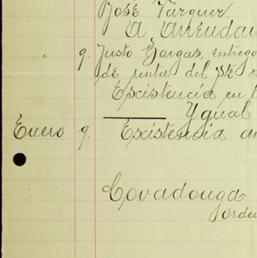 José Vazquez
A. Arrendam
9. Justo Vargas, entreg
de rentas del Ste
Existencia en l
Ygual
Enero 9. Existencia an
Covadonga
Jorde